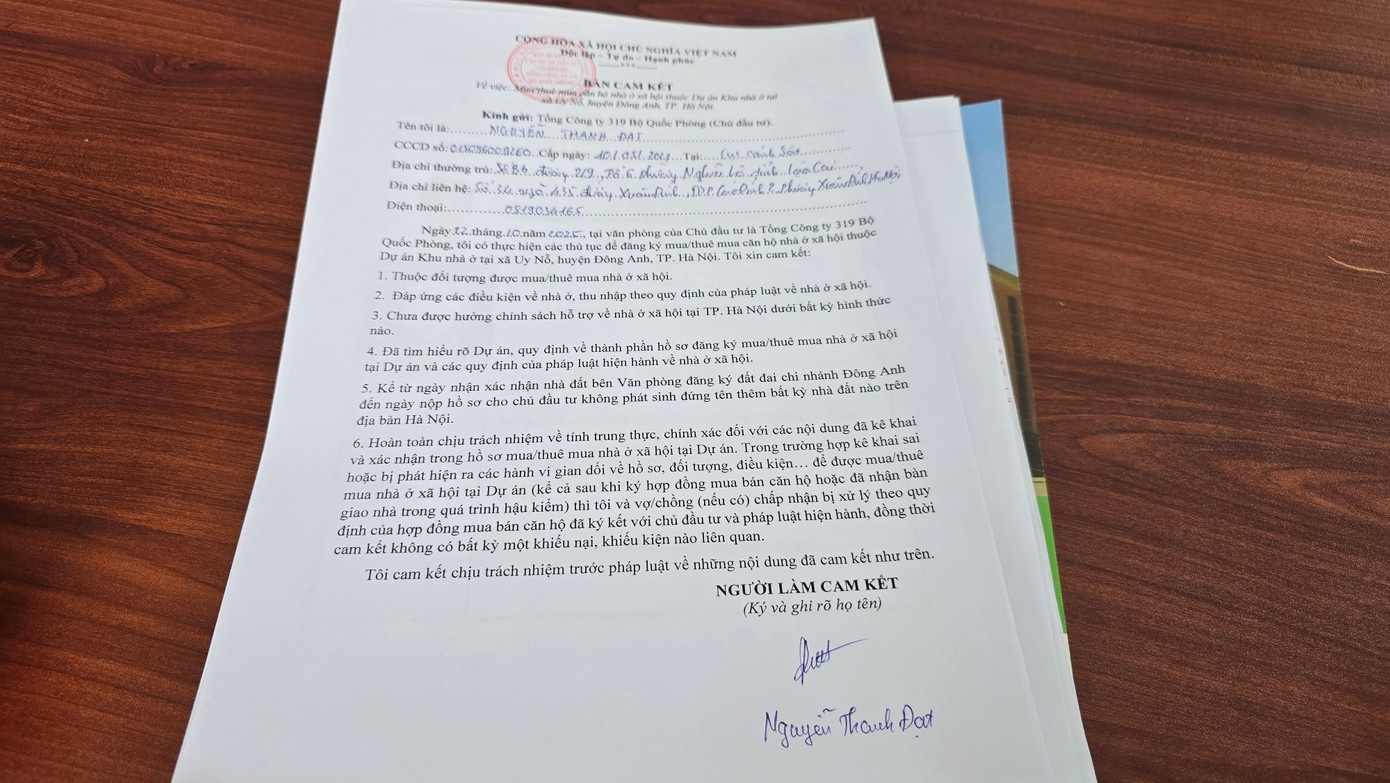 CỘNG HÒA XÃ HỘI CHỦ NGHĨA VIỆT NAM
Độc lập – Tự do – Hạnh phúc
BẢN CAM KẾT
Về việc: Mua/thuê mua căn hộ nhà ở xã hội thuộc Dự án Khu nhà ở tại
xã Uy Nỗ, huyện Đông Anh, TP. Hà Nội
Kính gửi: Tổng Công ty 319 Bộ Quốc Phòng (Chủ đầu tư)
Tên tôi là: NGUYỄN THANH ĐẠT
CCCD số: Cấp ngày: 10/05/2021 Tại: Cục Cảnh Sát
Địa chỉ thường trú: đường Tổ 6, phường Nghĩa Lộ, tỉnh Lào Cai
Địa chỉ liên hệ: Số 34 ngõ 435 đường Xuân Đỉnh, phường Xuân Đỉnh, Hà Nội
Điện thoại: 0819034165
Ngày 22 tháng 10 năm 2025, tại văn phòng của Chủ đầu tư là Tổng Công ty 319 Bộ
Quốc Phòng, tôi có thực hiện các thủ tục để đăng ký mua/thuê mua căn hộ nhà ở xã hội thuộc
Dự án Khu nhà ở tại xã Uy Nỗ, huyện Đông Anh, TP. Hà Nội. Tôi xin cam kết:
1. Thuộc đối tượng được mua/thuê mua nhà ở xã hội.
2. Đáp ứng các điều kiện về nhà ở, thu nhập theo quy định của pháp luật về nhà ở xã hội.
3. Chưa được hưởng chính sách hỗ trợ về nhà ở xã hội tại TP. Hà Nội dưới bất kỳ hình thức
nào.
4. Đã tìm hiểu rõ Dự án, quy định về thành phần hồ sơ đăng ký mua/thuê mua nhà ở xã hội
tại Dự án và các quy định của pháp luật hiện hành về nhà ở xã hội.
5. Kể từ ngày nhận xác nhận nhà đất bên Văn phòng đăng ký đất đai chi nhánh Đông Anh
đến ngày nộp hồ sơ cho chủ đầu tư không phát sinh đứng tên thêm bất kỳ nhà đất nào trên
địa bàn Hà Nội.
6. Hoàn toàn chịu trách nhiệm về tính trung thực, chính xác đối với các nội dung đã kê khai
và xác nhận trong hồ sơ mua/thuê mua nhà ở xã hội tại Dự án. Trong trường hợp kê khai sai
hoặc bị phát hiện ra các hành vi gian dối về hồ sơ, đối tượng, điều kiện… để được mua/thuê
mua nhà ở xã hội tại Dự án (kể cả sau khi ký hợp đồng mua bán căn hộ hoặc đã nhận bàn
giao nhà trong quá trình hậu kiểm) thì tôi và vợ/chồng (nếu có) chấp nhận bị xử lý theo quy
định của hợp đồng mua bán căn hộ đã ký kết với chủ đầu tư và pháp luật hiện hành, đồng thời
cam kết không có bất kỳ một khiếu nại, khiếu kiện nào liên quan.
Tôi cam kết chịu trách nhiệm trước pháp luật về những nội dung đã cam kết như trên.
NGƯỜI LÀM CAM KẾT
(Ký và ghi rõ họ tên)
Nguyễn Thanh Đạt